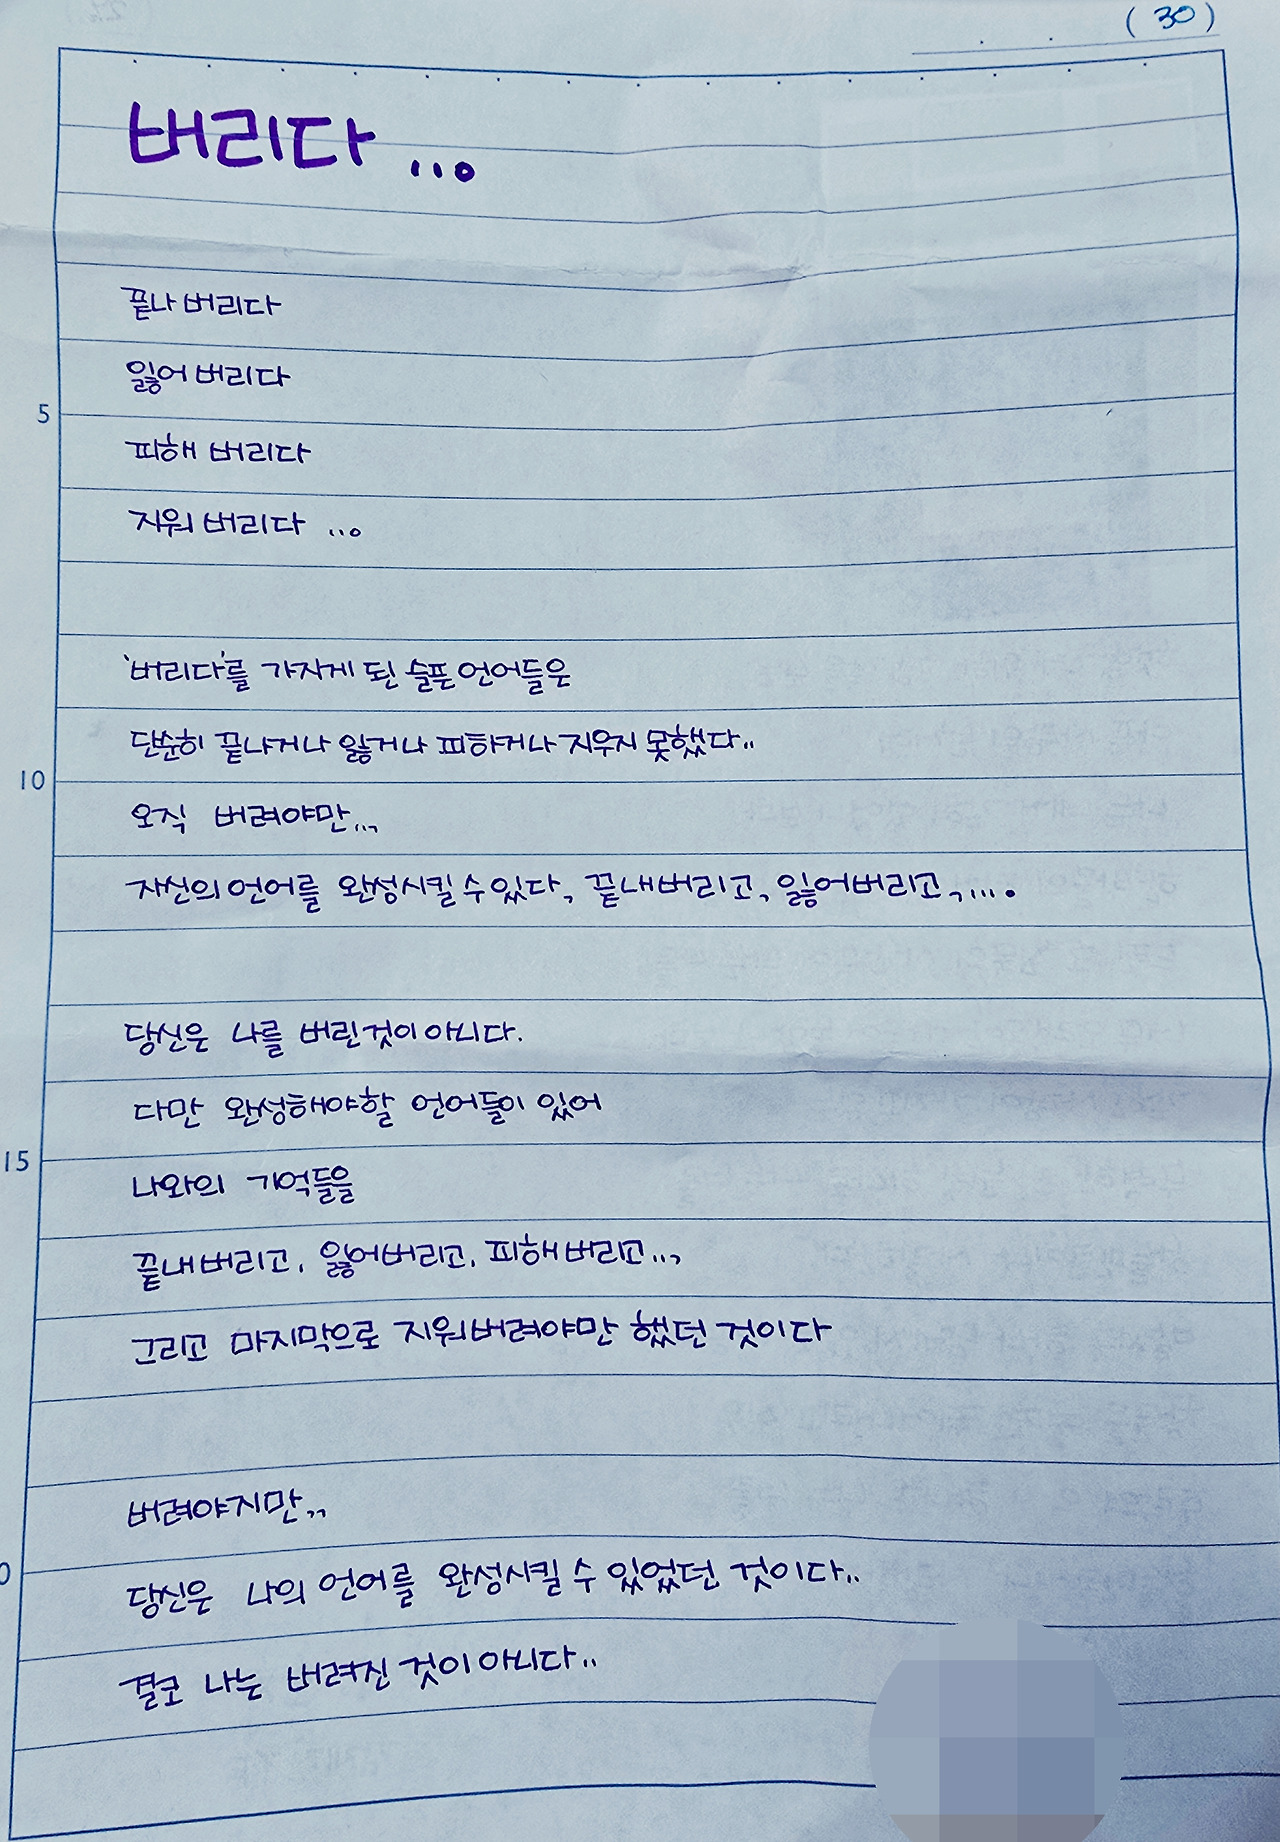 (30)
버리다...
끝나 버리다
잃어 버리다
피해 버리다
5
지워 버리다 ...
'버리다'를 가지게 된 슬픈 언어들은
단순히 끝나거나 잃거나 피하거나 지우지 못했다..
10
오직 버려야만...,
자신의 언어를 완성시킬 수 있다, 끝내버리고, 잃어버리고, ....
당신은 나를 버린것이 아니다.
다만 완성해야할 언어들이 있어
15
나와의 기억들을
끝내버리고, 잃어버리고, 피해버리고..,
그리고 마지막으로 지워버려야만 했던 것이다
버려야지만,,
0
당신은 나의 언어를 완성시킬 수 있었던 것이다..
결코 나는 버려진 것이 아니다..